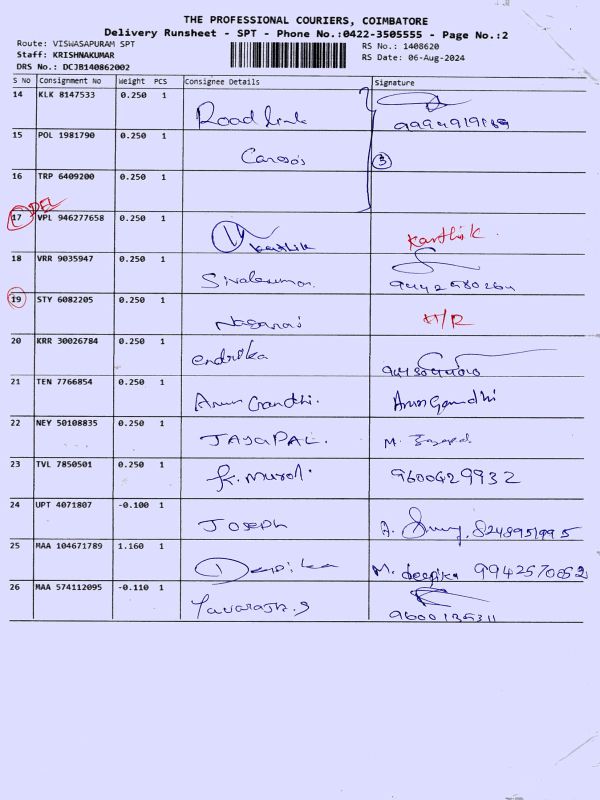 THE PROFESSIONAL COURIERS, COIMBATORE
Delivery Runsheet - SPT - Phone No.:0422-3505555 - Page No.:2
Route: VISWASAPURAM SPT
Staff: KRISHNAKUMAR
DRS No.: DCJB140862002
RS No.: 1408620
RS Date: 06-Aug-2024
S No Consignment No Weight PCS Consignee Details Signature
14 KLK 8147533 0.250 1
Road link
15 POL 1981790 0.250 1
3
16 TRP 6409200 0.250 1
DEL
17 VPL 946277658 0.250 1
Karthik Karthik
18 VRR 9035947 0.250 1
Sivakumar
19 STY 6082205 0.250 1
Nagaraj H/R
20 KRR 30026784 0.250 1
endrika
21 TEN 7766854 0.250 1
Arun Gandhi. Arun Gandhi
22 NEY 50108835 0.250 1
JAYAPAL. M.
23 TVL 7850501 0.250 1
K. Murali 9600429932
24 UPT 4071807 -0.100 1
JOSEPH A. 8248951995
25 MAA 104671789 1.160 1
Deepika M. deepika 9942570052
26 MAA 574112095 -0.110 1
Yuvarajh.S 9600135311